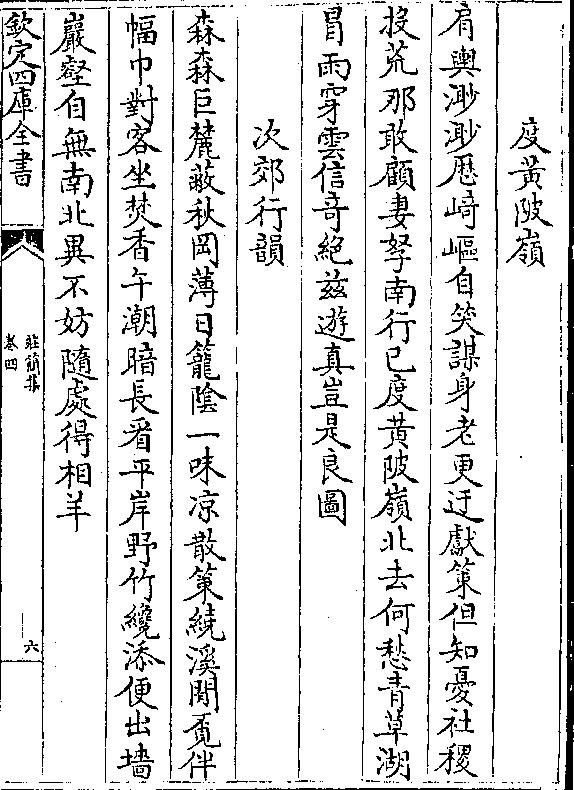 度黄陂嶺
肩輿渺渺歴﨑嶇自笑謀身老更迂獻策但知憂社稷
投荒那敢顧妻孥南行已度黄陂嶺北去何愁青草湖
冒雨穿雲信竒絶兹遊真豈是良圖
次郊行韻
森森巨麓蔽秋岡薄日籠隂一味凉散策繞溪閒覓伴
幅巾對客坐焚香午潮暗長看平岸野竹纔添便出墻
巖壑自無南北異不妨隨處得相羊
欽定四庫全書
莊簡集
卷四
六